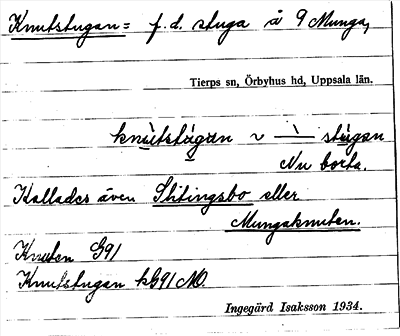 Knutstugan = f.d. stuga å 9 Munga,
Tierps sn, Örbyhus hd, Uppsala län.
knùtstùgan ~ – ̀ – stùgan
Nu borta.
Kallades även Stitingsbo eller
Mungaknuten.
Knuten G91
Knutstugan kG91 MO.
Ingegärd Isaksson 1934.